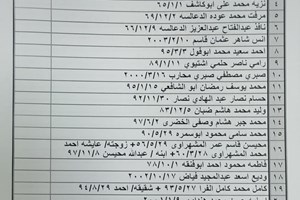 نزيه محمد على ابوكاشف ٦٥/١/١ ٤
مرفت محمد عوده الدعالسه ٦٩/١٢/٢ ٥
نافذ عبدالفتاح عبدالعزيز الدعالسه ٦٦/١٢/٩ ٦
انس شاهر عثمان قاسم ٢٠٠٢/٢/١٠ ٧
احمد سعيد محمد ابوفول ٩٥/٣/٣ ٨
رامي ناصر حلمي اشتيوي ٨٩/١/١ ٩
صبري مصطفي صبري محارب ٢٠٠٠/٣/١٦ ١٠
محمد يوسف رمضان ابو الشافعي ٩٥/١/١٥ ١١
حسام نصار عبد الهادي نصار ٩٢/١١/٣٠ ١٢
وليد محمد هاشم ضبان ٨٢/٥/٢ ١٣
محمد جبر هشام وصفي الخضري ٩٧/٦/٢ ١٤
محمد سامي محمود ابوسمره ٩٠/٥/٢٩ ١٥
محيسن قاسم عمر المشهراوى ٥٦/٥/٢٩ + زوجتة/ عايشه احمد ١٦
محمد المشهراوى ٦٠/٣/٢٨ + ابنه / عبدالله محيسن ٩٧/١/٨
فاطمه محمود احمد ابوفنقه ٧٨/١٠/١ ١٧
وديع اسعد عبدالمجيد فياض ٢٠٠٢/١٠/١٧ ١٨
كامل محمد كامل الفرا ٩٣/٥/٢٧ + شقيقه/ احمد ٩٤/٨/٢٩ ١٩